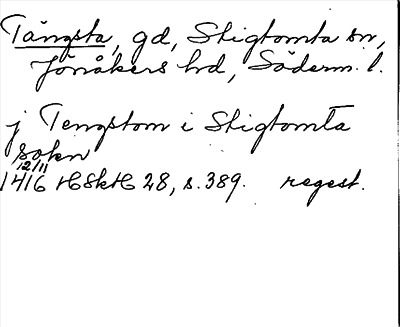 Tängsta, gd, Stigtomta sn,
Jönåkers hd, Söderm. l.
j Tengstom i Stigtomta
sokn
12/11
1416 HSkH 28, s. 389. regest.